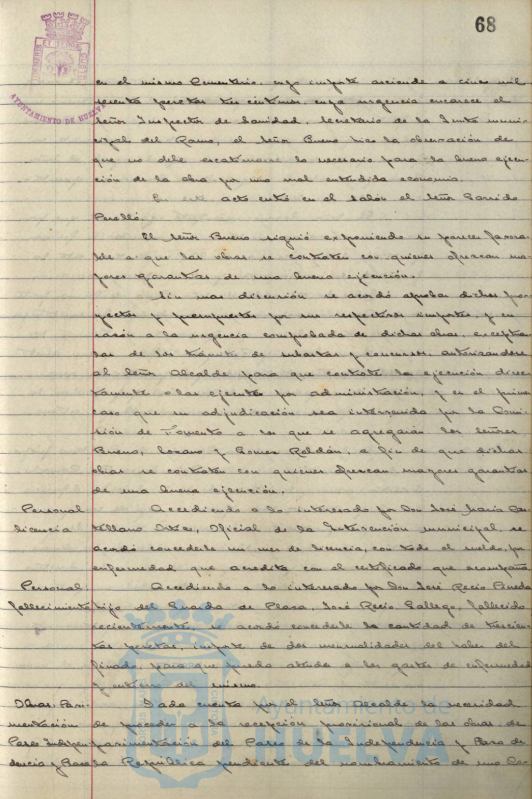 68
AYUNTAMIENTO DE HUELVA
en el mismo Cementerio, cuyo importe asciende a cinco mil
pesetas tres céntimos, cuya urgencia encarece el
Señor Inspector de Sanidad, Secretario de la Junta muni-
cipal del Ramo, el Señor Bueno hizo la observación de
que no debe escatimarse lo necesario para la buena ejecu-
ción de la obra por una mal entendida economía.
En este acto entró en el salón el Señor Garrido
Perelló.
El Señor Bueno siguió exponiendo su parecer favora-
ble a que las obras se contraten con quienes ofrezcan ma-
yores garantías de una buena ejecución.
Sin mas discusión se acordó aprobar dichos pro-
yectos y presupuestos por sus respectivos importes, y en
razón a la urgencia comprobada de dichas obras, exceptuar-
las de los trámites de subastas y concursos, autorizandose
al Señor Alcalde para que contrate la ejecución direc-
tamente o las ejecute por administración, y en el primer
caso que su adjudicación sea intervenida por la Comi-
sión de Fomento a los que se agregarán los Señores
Bueno, Lozano y Gomez Roldán, a fin de que dichas
obras se contraten con quienes ofrezcan mayores garantías
de una buena ejecución.
Personal
licencia
Accediendo a lo interesado por Don José Maria
Ortiz, Oficial de la Intervención municipal, se
acordó concederle un mes de licencia, con todo el sueldo, por
enfermedad que acredita con el certificado que acompaña.
Personal:
fallecimiento
Accediendo a lo interesado por Don José Recio
hijo del Guarda de Plaza, José Recio Gallego, fallecido
recientemente, se acordó concederle la cantidad de trescien-
tas pesetas, importe de dos mensualidades del haber del
finado, para que pueda atender a los gastos de enfermedad
y entierro del mismo.
Obras: Pavi-
mentación
Paseo Indepen-
dencia y Paseo
Dada cuenta por el Señor Alcalde la necesidad
de proceder a la recepción provisional de las obras de
pavimentación del Paseo de la Independencia y Paseo de
la República pendiente del nombramiento de una Co-
Ayuntamiento de
HUELVA